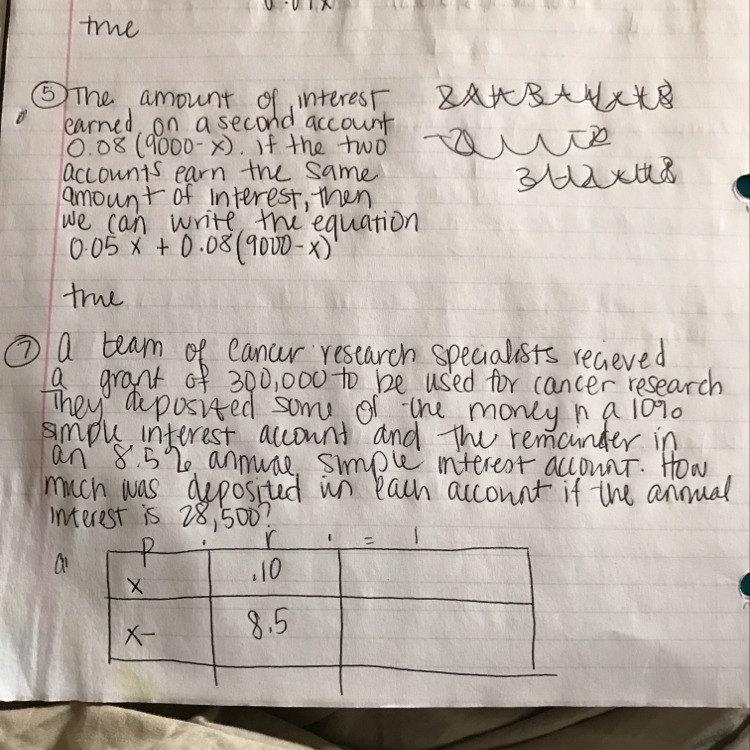 true
⑤ The amount of interest
earned on a second account
0.08 (9000-x). If the two
accounts earn the same
amount of interest, then
we can write the equation
0.05 x + 0.08(9000-x)
true
⑦ a team of cancer research specialists recieved
a grant of 300,000 to be used for cancer research
They deposited some of the money in a 10%
simple interest account and the remainder in
an 8.5% annual simple interest account. How
much was deposited in each account if the annual
interest is 28,500?
P . r . = I
a
x .10
x- 8.5